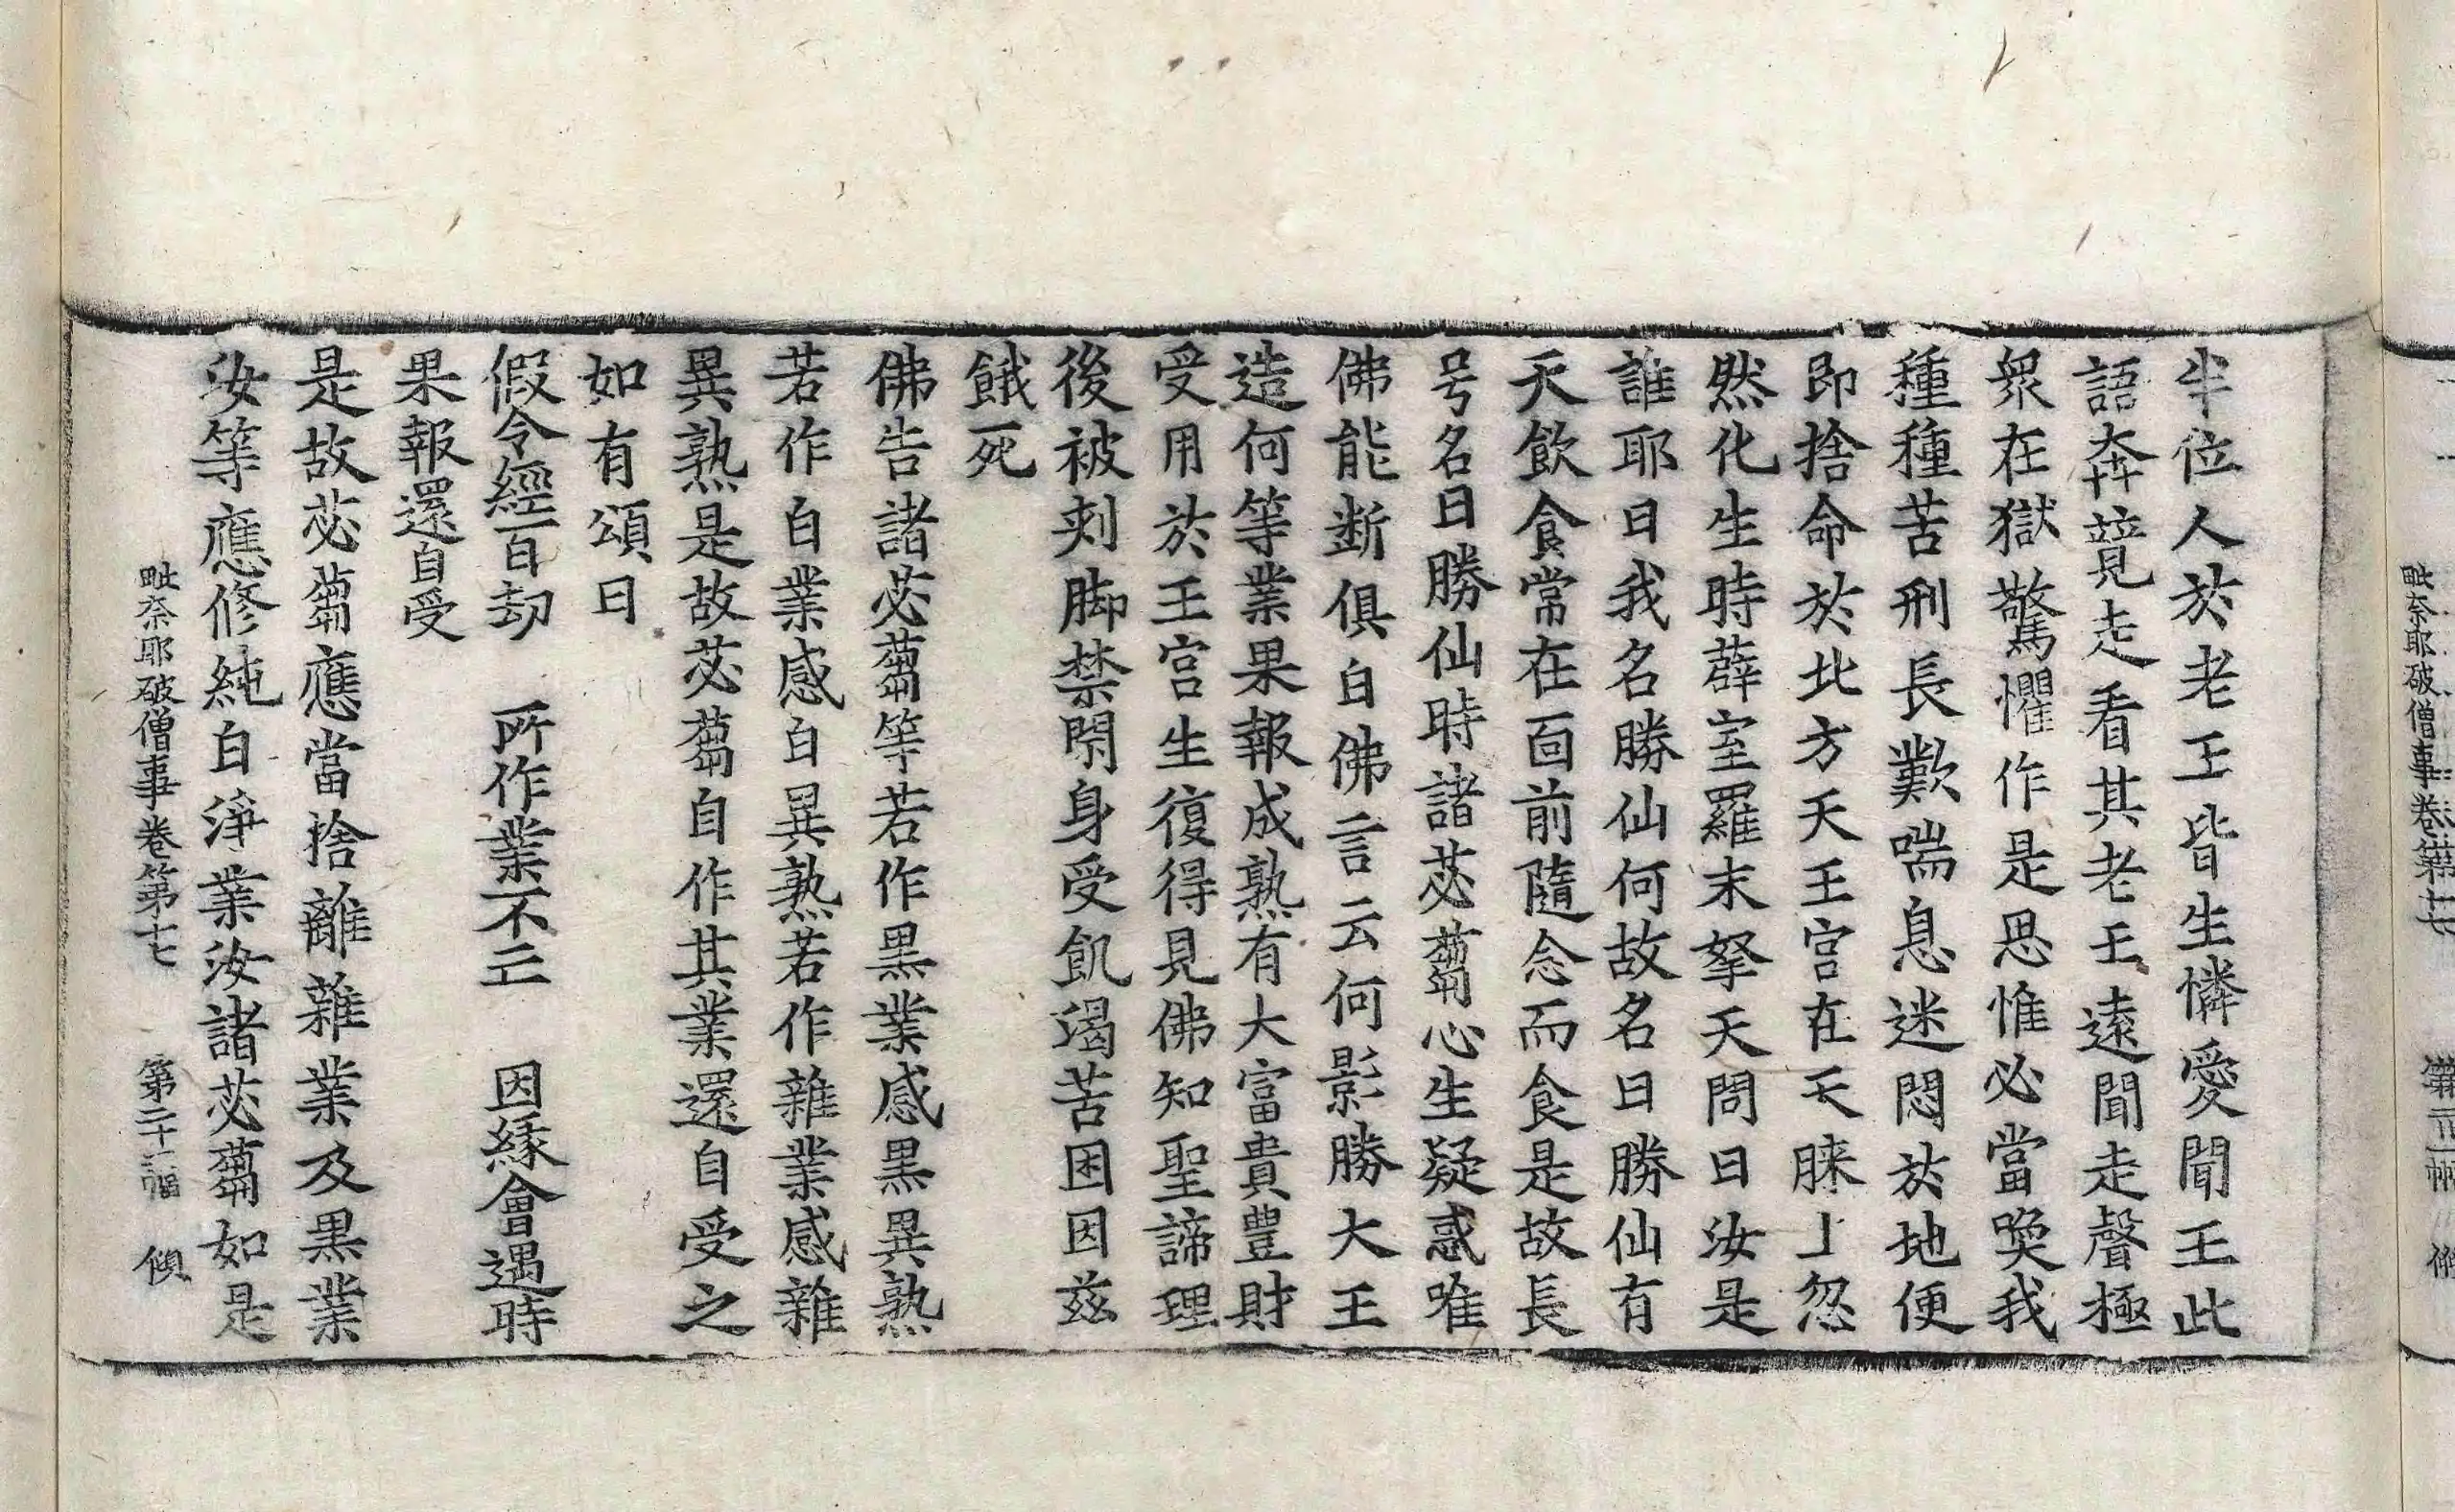 半位人於老王皆生憐愛聞王此
語奔競走看其老王遠聞走聲極
衆在獄驚懼作是思惟必當喚我
種種苦刑長歎喘息迷悶於地便
即捨命於北方天王宫在天䏶上忽
然化生時薜室羅末拏天問曰汝是
誰耶曰我名勝仙何故名曰勝仙有
天飲食常在面前隨念而食是故長
号名曰勝仙時諸苾蒭心生疑惑唯
佛能斷俱白佛言云何影勝大王
造何等業果報成熟有大富貴豊財
受用於王宫生復得見佛知聖諦理
後被刾脚禁閇身受飢渴苦困因兹
餓死
佛告諸苾蒭等若作黒業感黒異熟
若作白業感白異熟若作雜業感雜
異熟是故苾蒭自作其業還自受之
如有頌曰
假令經百劫　所作業不亡　因緣會遇時
果報還自受
是故苾蒭應當捨離雜業及黒業
汝等應修純白淨業汝諸苾蒭如是
毗奈耶破僧事卷第十七　第二十二幅　傾
毗奈耶破僧事卷第十七